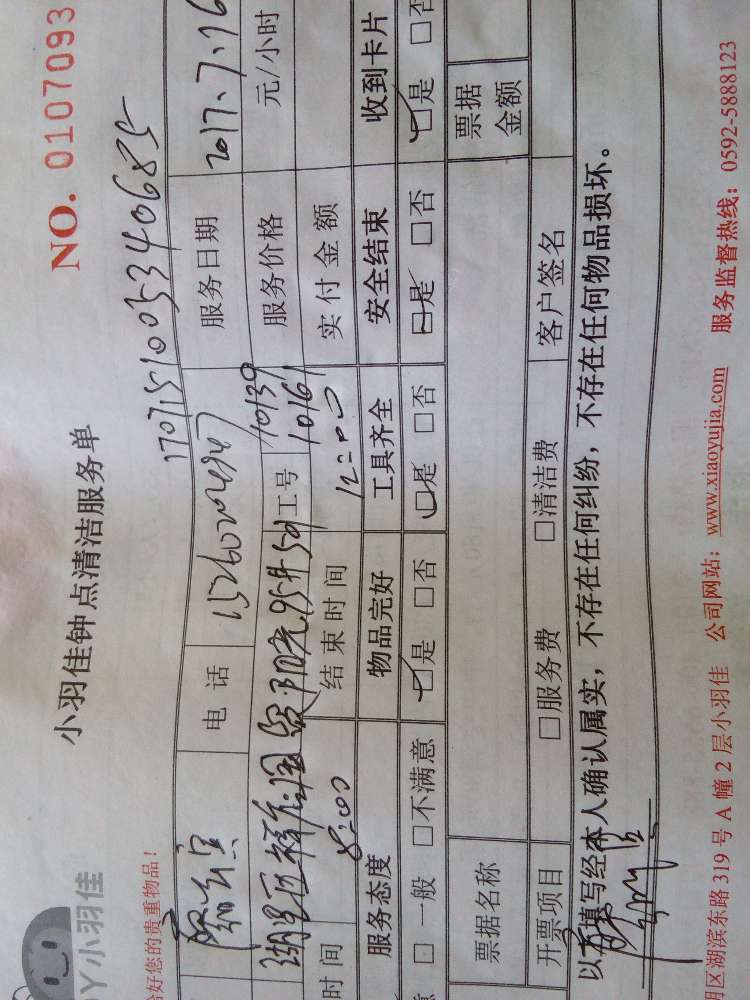 小羽佳钟点清洁服务单 NO. 0107093
Y小羽佳
好您的贵重物品！
1707151003340685
电话 服务日期 2017.7.16
工号 10139 服务价格 元/小时
10161
时间 8:00 结束时间 12:00 实付金额
服务态度 物品完好 工具齐全 安全结束 收到卡片
意 □一般 □不满意 □是 □否 □是 □否 □是 □否 □是 □否
票据名称 票据金额
开票项目 □服务费 □清洁费 客户签名
以上填写经本人确认属实，不存在任何纠纷，不存在任何物品损坏。
明区湖滨东路 319 号 A 幢 2 层小羽佳 公司网站：www.xiaoyujia.com 服务监督热线：0592-5888123